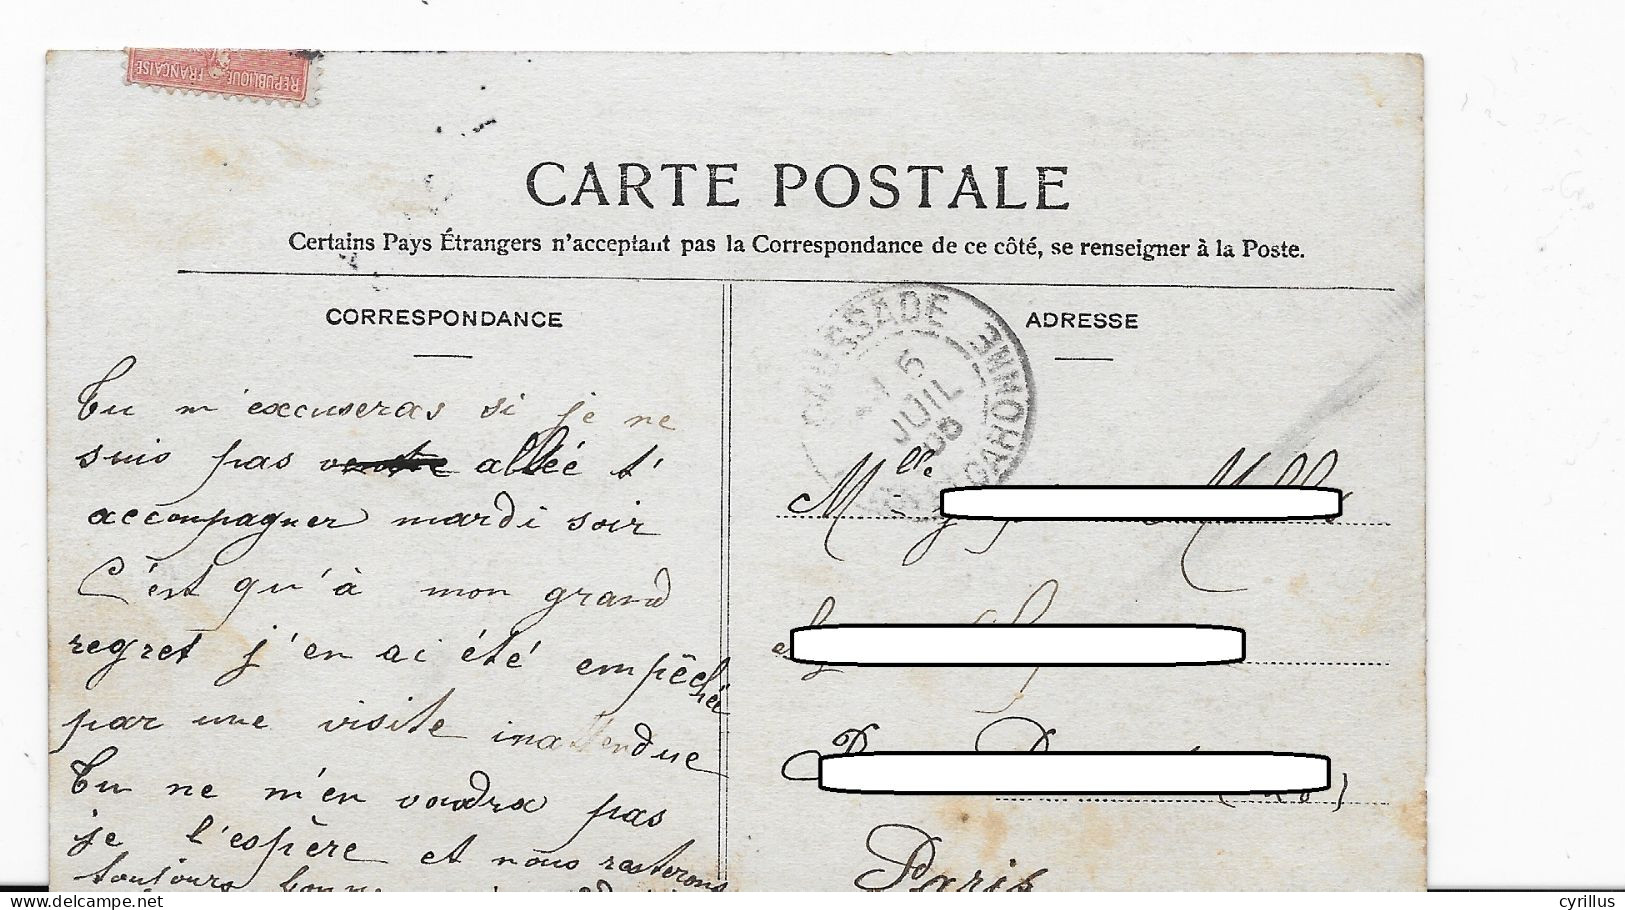 REPUBLIQUE FRANÇAISE
CARTE POSTALE
Certains Pays Étrangers n'acceptant pas la Correspondance de ce côté, se renseigner à la Poste.
CORRESPONDANCE
ADRESSE
CAUSSADE
TARN & GARONNE
6
JUIL
Tu m'excuseras si je ne
suis pas allée t'
accompagner mardi soir
C'est qu'à mon grand
regret j'en ai été empêchée
par une visite inattendue
Tu ne m'en voudra pas
je l'espère et nous resterons
toujours bonne
Mlle
Paris
delcampe.net
cyrillus